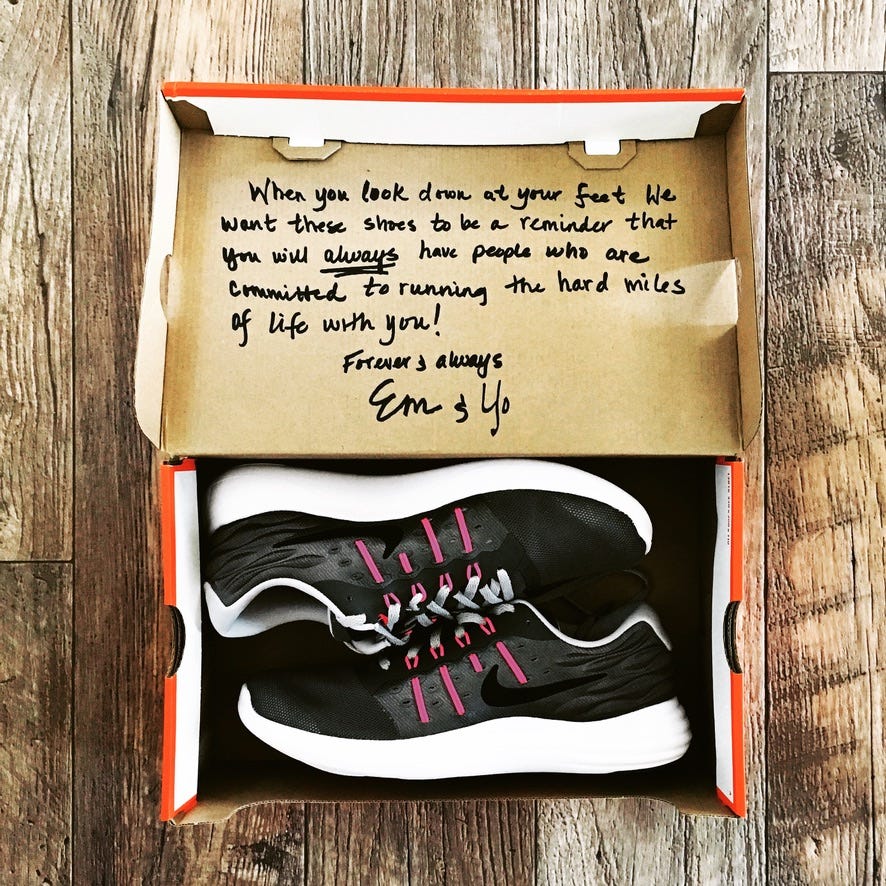 When you look down at your feet We
want these shoes to be a reminder that
you will always have people who are
committed to running the hard miles
of life with you!
Forever & always
Em & Yo